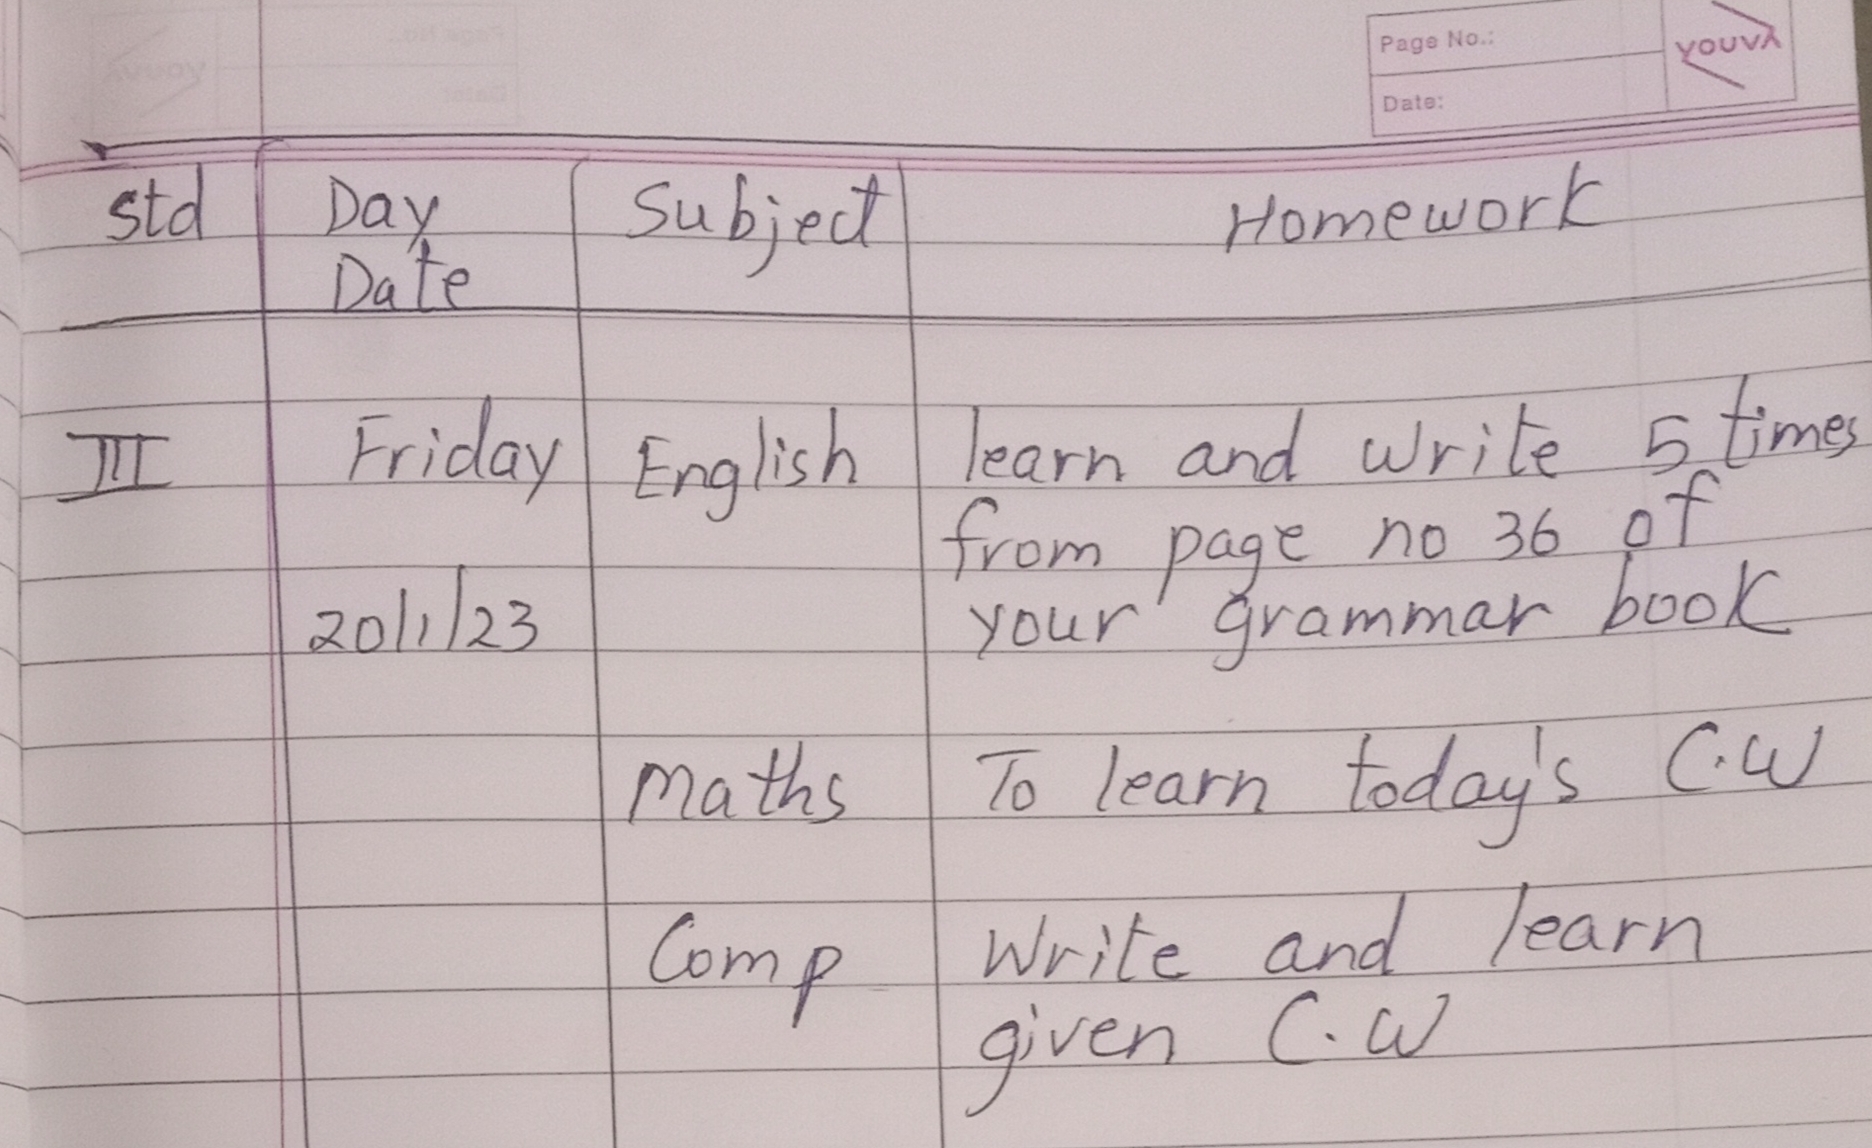 Page No.:
Date:
YOUVA
Std Day Subject Homework
Date
III Friday English learn and write 5 times
from page no 36 of
20/1/23 your grammar book
Maths To learn today's C.W
Comp Write and learn
given C.W